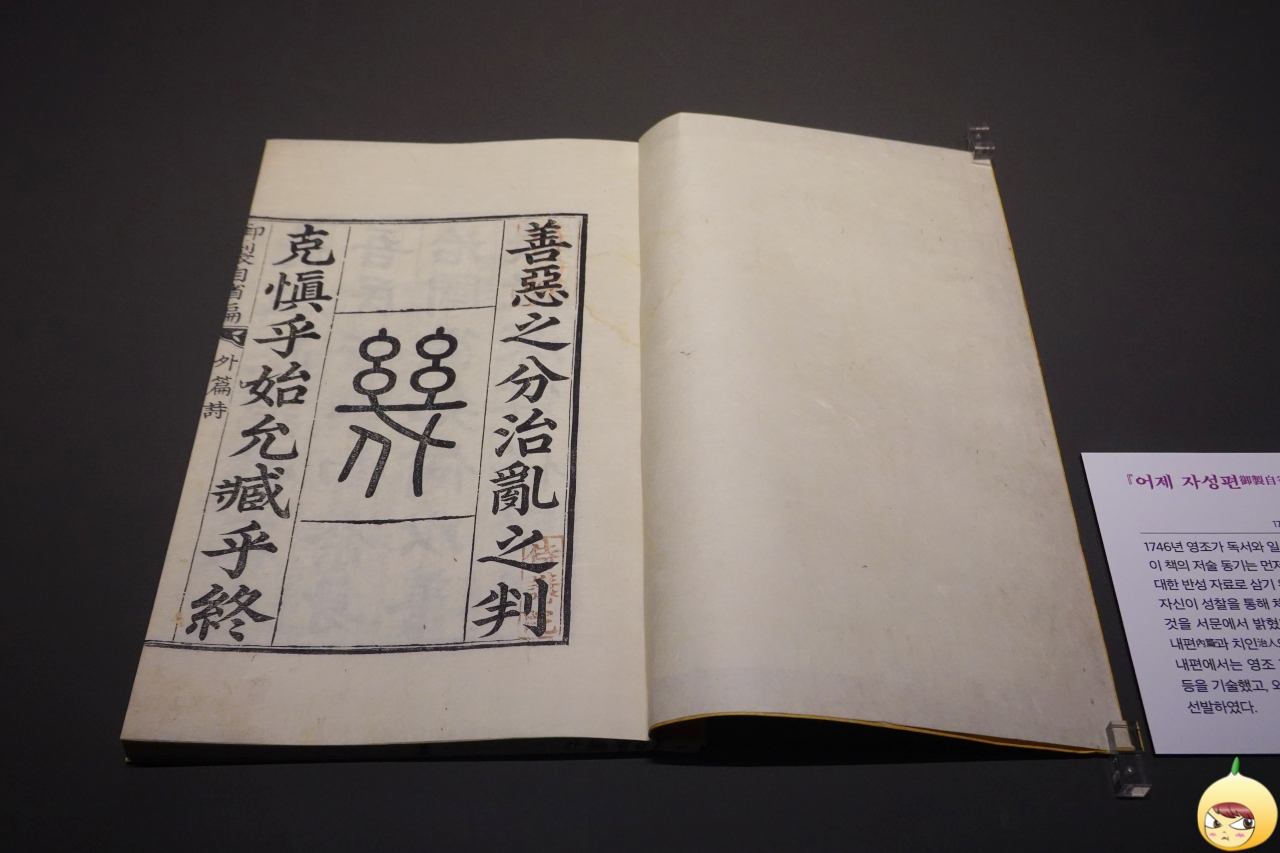 善惡之分治亂之判
幾
克愼乎始允臧乎終
御製自省編
外篇詩
『어제 자성편御製自
17
1746년 영조가 독서와 일
이 책의 저술 동기는 먼저
대한 반성 자료로 삼기
자신이 성찰을 통해
것을 서문에서 밝혔
내편內篇과 치인治人
내편에서는 영조
등을 기술했고,
선발하였다.